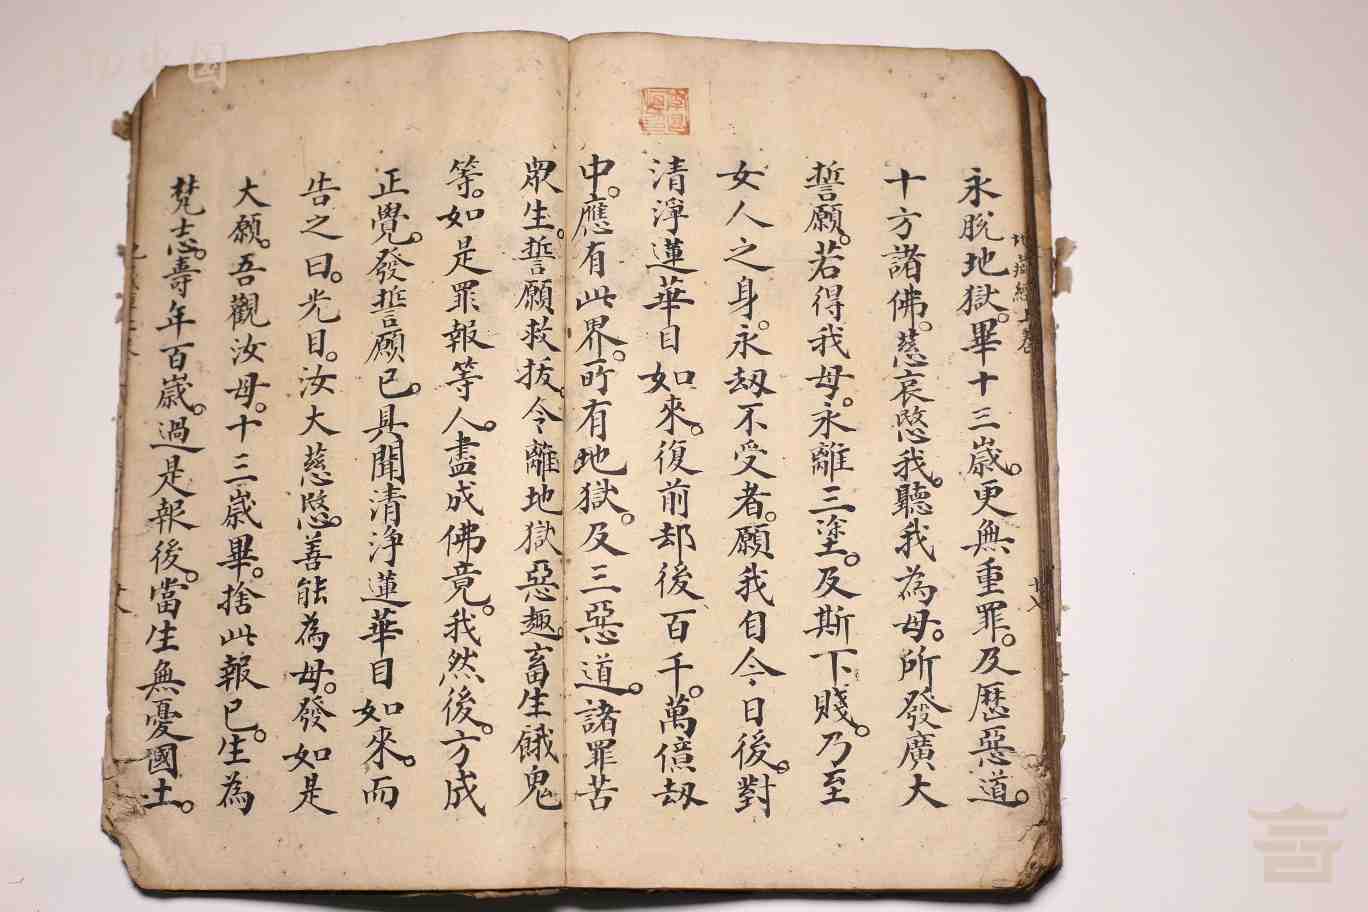 永脫地獄。畢十三歲。更無重罪。及歷惡道。
十方諸佛。慈哀愍我。聽我為母。所發廣大
誓願。若得我母。永離三塗。及斯下賤。乃至
女人之身。永刼不受者。願我自今日後。對
清淨蓮華目如來。復前却後百千。萬億刼
中。應有此界。所有地獄。及三惡道。諸罪苦
眾生。誓願救拔。令離地獄惡趣。畜生餓鬼
等。如是罪報等人。盡成佛竟。我然後。方成
正覺。發誓願已。具聞清淨蓮華目如來。而
告之曰。光目。汝大慈愍。善能為母。發如是
大願。吾觀汝母。十三歲畢。捨此報已。生為
梵志。壽年百歲。過是報後。當生無憂國土。
地藏經上卷
中国